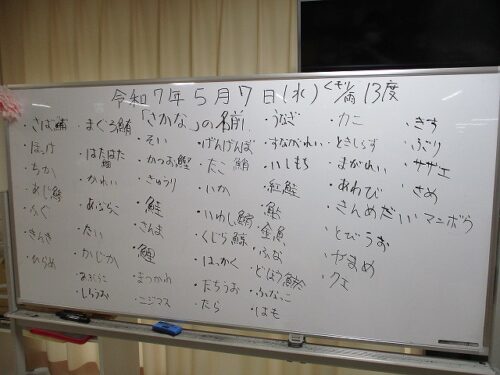 令和7年5月7日(水) くもり 13度
「さかな」の名前
・さば 鯖
・ほっけ
・ちか
・あじ 鯵
・ふぐ
・きんき
・ひらめ
・まぐろ 鮪
・はたはた
・かれい
・あぶらこ
・たい
・かじか
・しらうお
・そい
・かつお 鰹
・きゅうり
・鮭
・さんま
・まつかわ
・ニジマス
・げんげんぼ
・たこ 鮹
・いか
・いわし 鰯
・くじら 鯨
・はっかく
・たちうお
・たら
・うなぎ
・すながれい
・いしもち
・紅鮭
・金魚
・ふな
・どじょう
・ふなっこ
・はも
・カニ
・ときしらず
・まがれい
・あわび
・きんめだい
・とびうお
・やまめ
・クエ
・きす
・ぶり
・サザエ
・さめ
・マンボウ